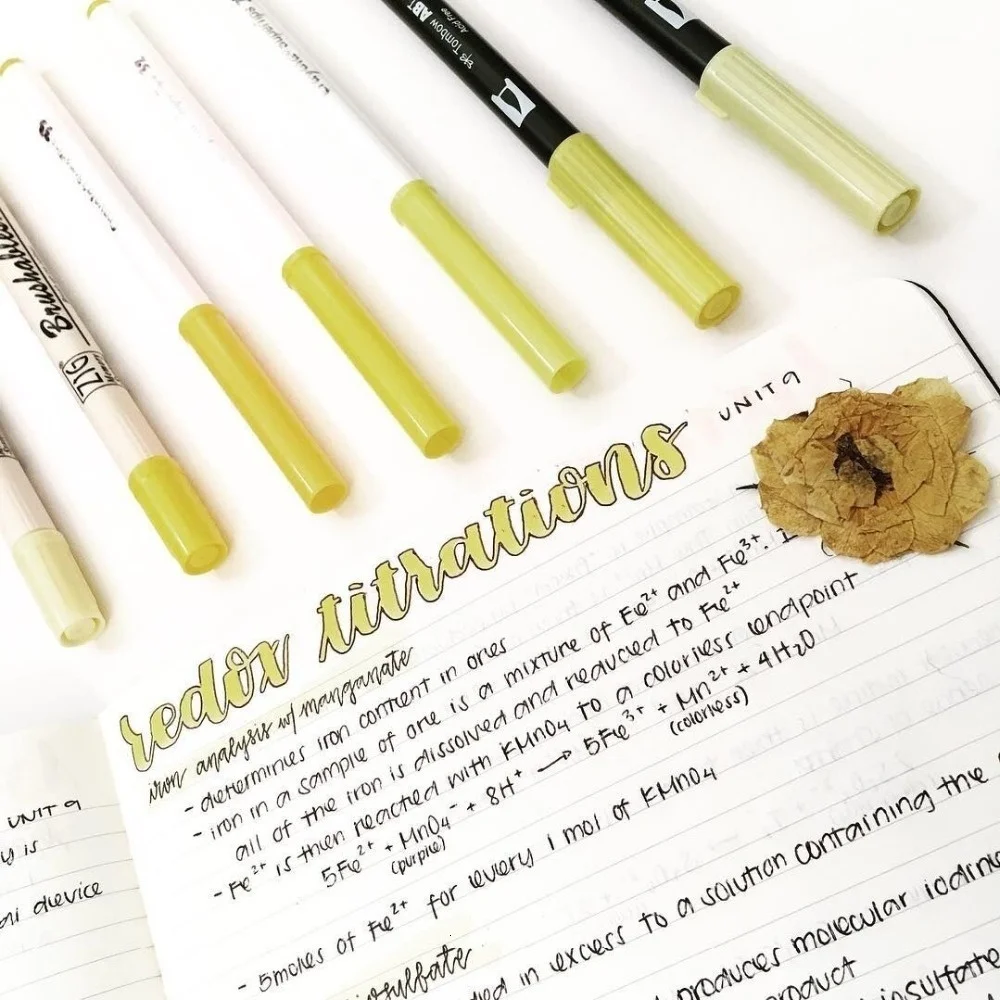 Brushables
ZIG
Tombow ABT
Acid Free
UNIT 9
redox titrations
iron analysis w/ manganate
- determines iron content in ores
- iron in a sample of ore is a mixture of Fe²⁺ and Fe³⁺.
all of the iron is dissolved and reduced to Fe²⁺
- Fe²⁺ is then reacted with KMnO4 to a colorless endpoint
5Fe²⁺ + MnO₄⁻ + 8H⁺ → 5Fe³⁺ + Mn²⁺ + 4H₂O
(purple) (colorless)
- 5moles of Fe²⁺ for every 1 mol of KMnO4
in excess to a solution containing the
produces molecular iodine
product
UNIT 9
y is
device